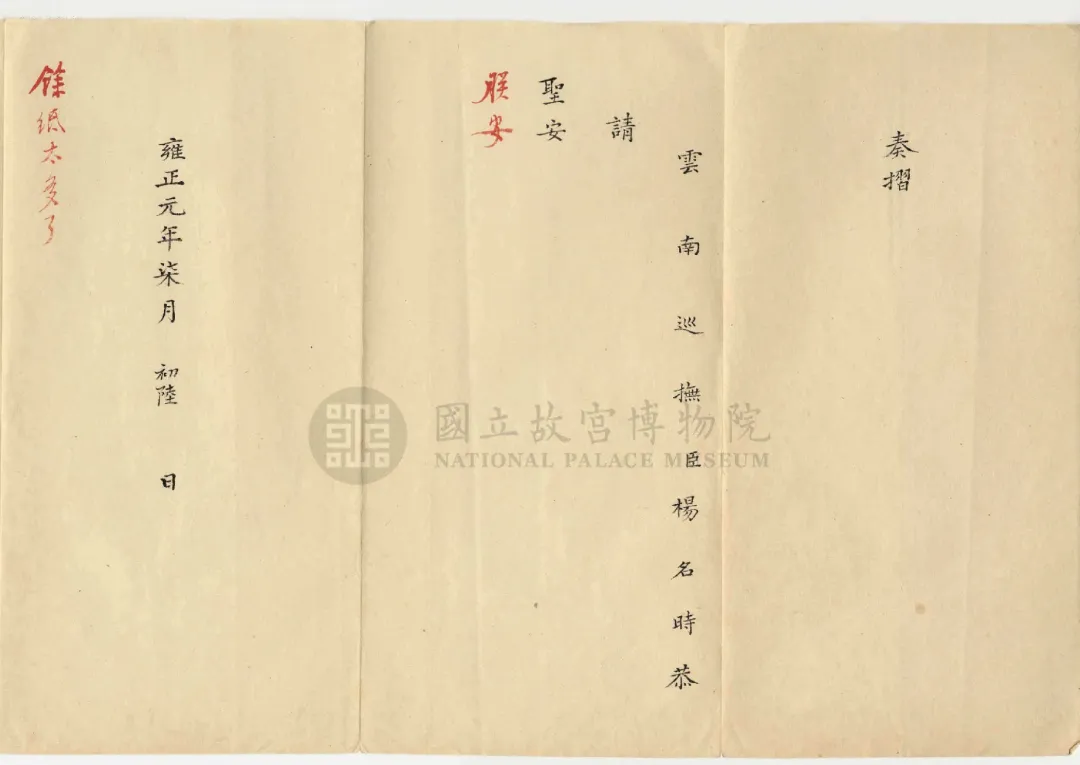 奏摺
雲南巡撫臣楊名時恭
請
聖安
朕安
雍正元年柒月 初陸 日
餘紙太多了
國立故宮博物院
NATIONAL PALACE MUSEUM